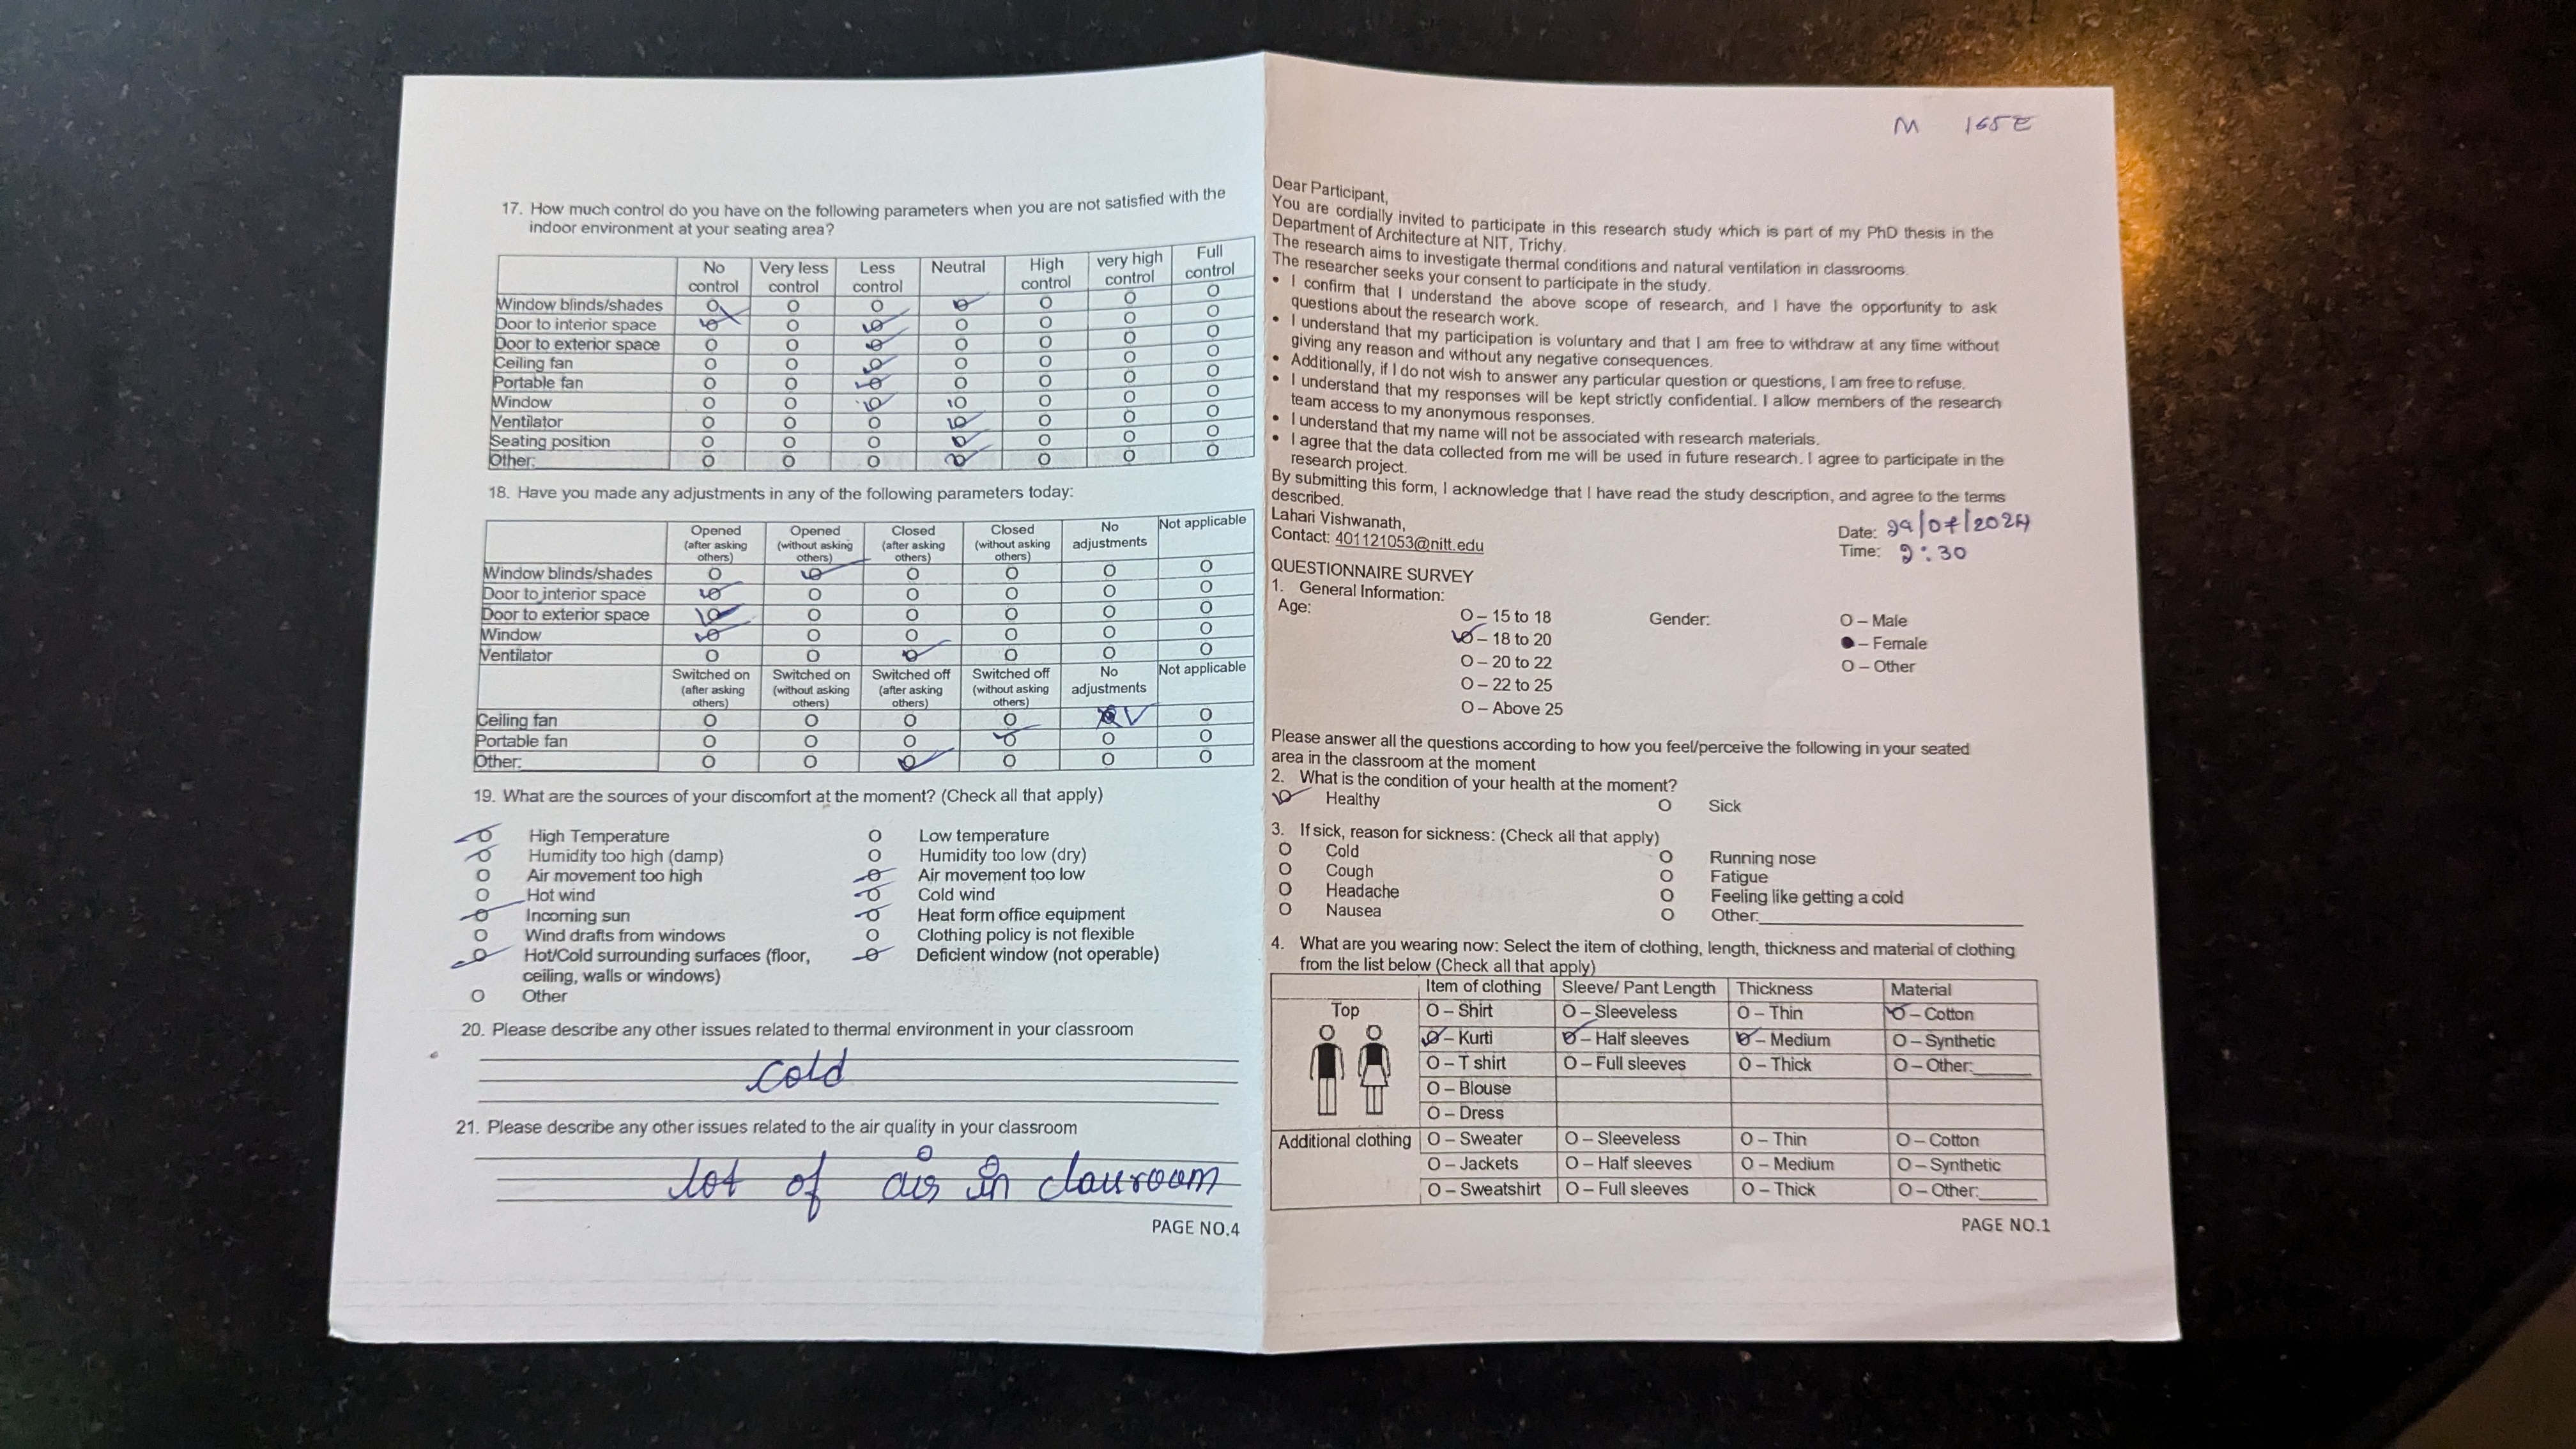 17. How much control do you have on the following parameters when you are not satisfied with the
indoor environment at your seating area?
No control Very less control Less control Neutral High control very high control Full control
Window blinds/shades O O O O O O O
Door to interior space O O O O O O O
Door to exterior space O O O O O O O
Ceiling fan O O O O O O O
Portable fan O O O O O O O
Window O O O O O O O
Ventilator O O O O O O O
Seating position O O O O O O O
Other: O O O O O O O
18. Have you made any adjustments in any of the following parameters today:
Opened (after asking others) Opened (without asking others) Closed (after asking others) Closed (without asking others) No adjustments Not applicable
Window blinds/shades O O O O O O
Door to interior space O O O O O O
Door to exterior space O O O O O O
Window O O O O O O
Ventilator O O O O O O
Switched on (after asking others) Switched on (without asking others) Switched off (after asking others) Switched off (without asking others) No adjustments Not applicable
Ceiling fan O O O O O O
Portable fan O O O O O O
Other: O O O O O O
19. What are the sources of your discomfort at the moment? (Check all that apply)
O High Temperature O Low temperature
O Humidity too high (damp) O Humidity too low (dry)
O Air movement too high O Air movement too low
O Hot wind O Cold wind
O Incoming sun O Heat form office equipment
O Wind drafts from windows O Clothing policy is not flexible
O Hot/Cold surrounding surfaces (floor, O Deficient window (not operable)
ceiling, walls or windows)
O Other
20. Please describe any other issues related to thermal environment in your classroom
cold
21. Please describe any other issues related to the air quality in your classroom
lot of air in classroom
PAGE NO.4
M 165E
Dear Participant,
You are cordially invited to participate in this research study which is part of my PhD thesis in the
Department of Architecture at NIT, Trichy.
The research aims to investigate thermal conditions and natural ventilation in classrooms.
The researcher seeks your consent to participate in the study.
• I confirm that I understand the above scope of research, and I have the opportunity to ask
questions about the research work.
• I understand that my participation is voluntary and that I am free to withdraw at any time without
giving any reason and without any negative consequences.
• Additionally, if I do not wish to answer any particular question or questions, I am free to refuse.
• I understand that my responses will be kept strictly confidential. I allow members of the research
team access to my anonymous responses.
• I understand that my name will not be associated with research materials.
• I agree that the data collected from me will be used in future research. I agree to participate in the
research project.
By submitting this form, I acknowledge that I have read the study description, and agree to the terms
described.
Lahari Vishwanath,
Contact: 401121053@nitt.edu
Date: 29/07/2024
Time: 2:30
QUESTIONNAIRE SURVEY
1. General Information:
Age: O – 15 to 18 Gender: O – Male
O – 18 to 20 – Female
O – 20 to 22 O – Other
O – 22 to 25
O – Above 25
Please answer all the questions according to how you feel/perceive the following in your seated
area in the classroom at the moment
2. What is the condition of your health at the moment?
O Healthy O Sick
3. If sick, reason for sickness: (Check all that apply)
O Cold O Running nose
O Cough O Fatigue
O Headache O Feeling like getting a cold
O Nausea O Other:
4. What are you wearing now: Select the item of clothing, length, thickness and material of clothing
from the list below (Check all that apply)
Item of clothing Sleeve/ Pant Length Thickness Material
Top O – Shirt O – Sleeveless O – Thin O – Cotton
O – Kurti O – Half sleeves O – Medium O – Synthetic
O – T shirt O – Full sleeves O – Thick O – Other:
O – Blouse
O – Dress
Additional clothing O – Sweater O – Sleeveless O – Thin O – Cotton
O – Jackets O – Half sleeves O – Medium O – Synthetic
O – Sweatshirt O – Full sleeves O – Thick O – Other:
PAGE NO.1